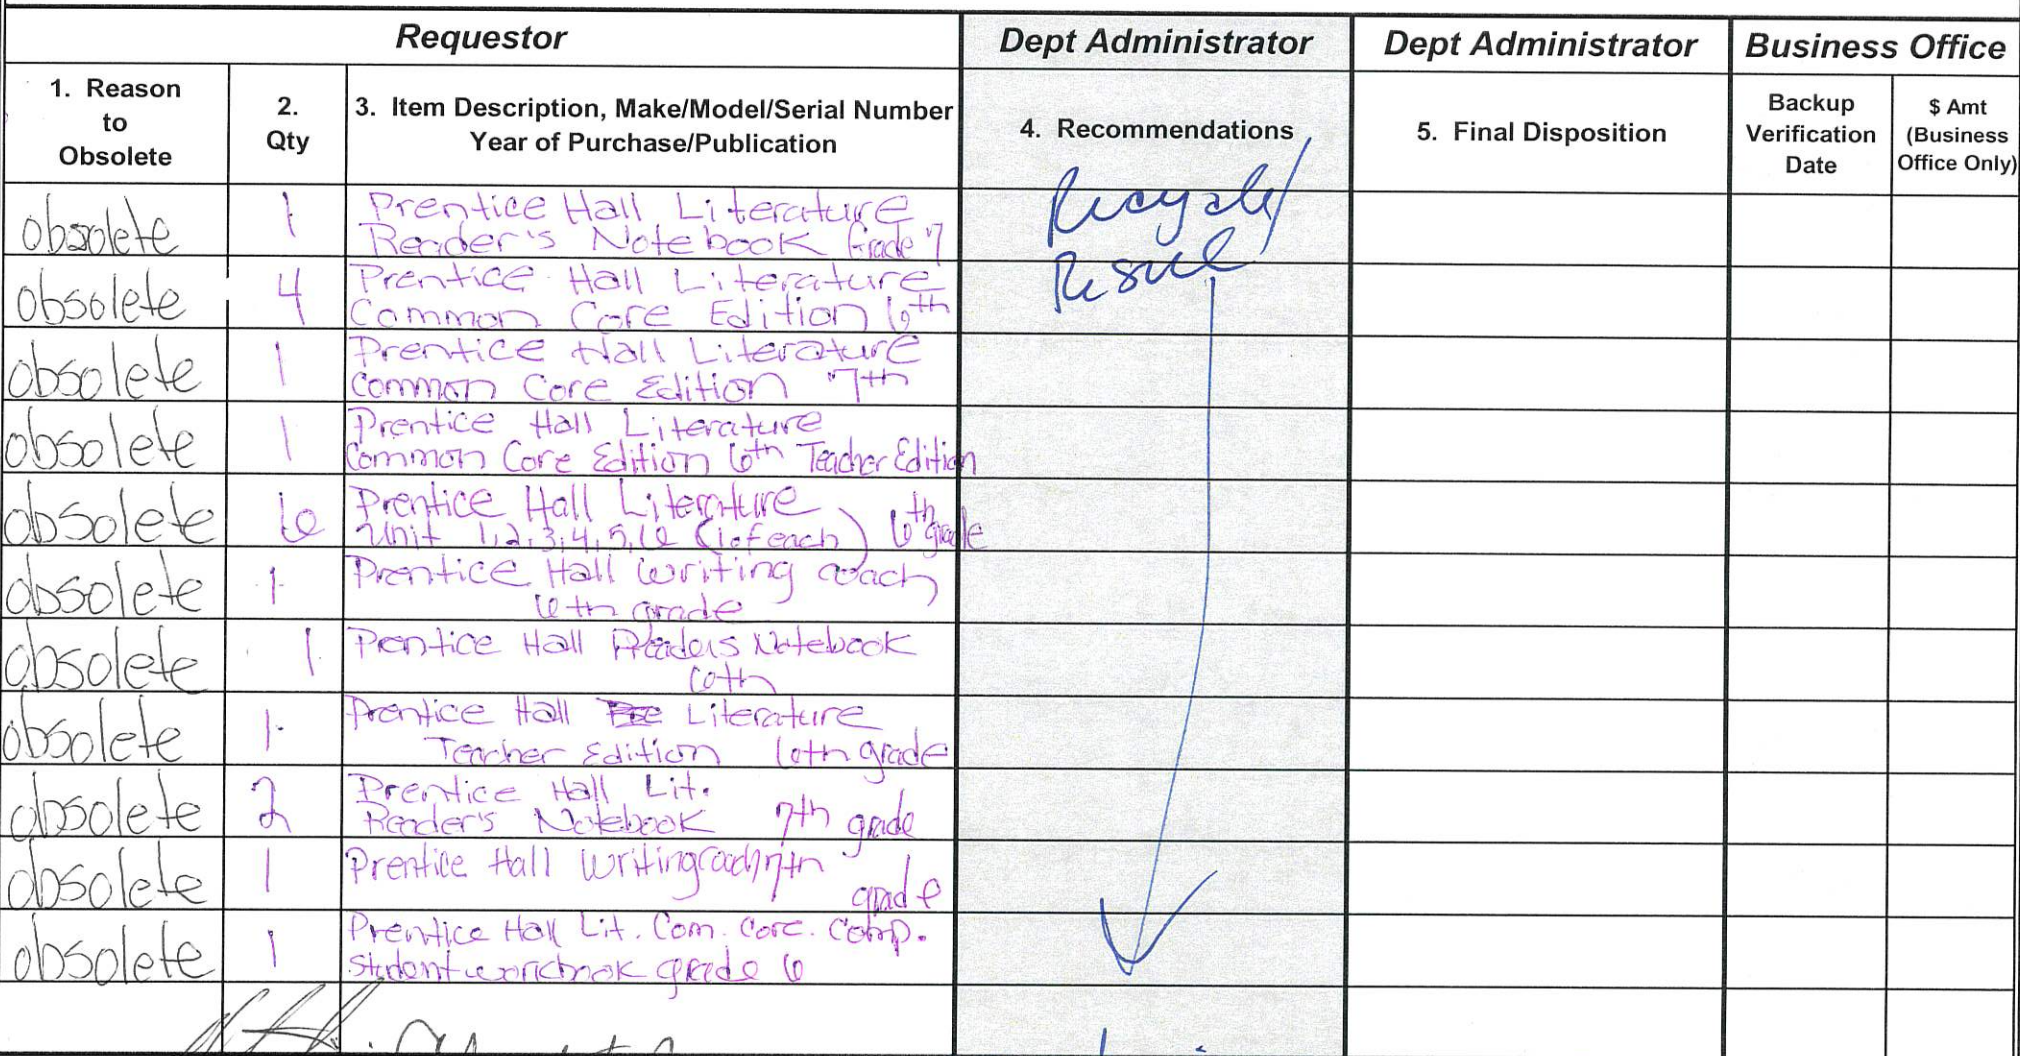 Requestor
Dept Administrator
Dept Administrator
Business Office
1. Reason
to
Obsolete
2.
Qty
3. Item Description, Make/Model/Serial Number
Year of Purchase/Publication
4. Recommendations
5. Final Disposition
Backup
Verification
Date
$ Amt
(Business
Office Only)
obsolete 1 Prentice Hall Literature
Reader's Notebook Grade 7
Recycle/
obsolete 4 Prentice Hall Literature
Common Core Edition 6th
obsolete 1 Prentice Hall Literature
Common Core Edition 7th
obsolete 1 Prentice Hall Literature
Common Core Edition 6th Teacher Edition
obsolete 6 Prentice Hall Literature
Unit 1,2,3,4,5,6 (1 of each) 6th grade
obsolete 1 Prentice Hall Writing coach
6th grade
obsolete 1 Prentice Hall Readers Notebook
6th
obsolete 1 Prentice Hall Literature
Teacher Edition 6th grade
obsolete 2 Prentice Hall Lit.
Reader's Notebook 7th grade
obsolete 1 Prentice Hall Writing coach 7th
grade
obsolete 1 Prentice Hall Lit. Com. Core. Comp.
Student workbook grade 6